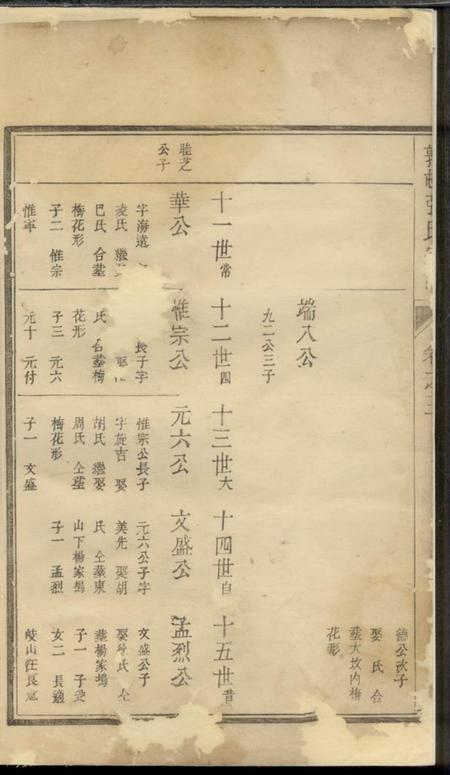 張氏
卷之三
德公次子
娶 氏 合
葬大坟內梅
花形
端八公
九二公三子
十一世常
十二世四
十三世大
十四世自
十五世昔
睦芝
公子
華公
字海遠
凌氏 繼
巴氏 合葬
梅花形
子二 惟宗
惟寧
惟宗公
長子字
娶
氏 合葬梅
花形
子三 元六
元十 元付
元六公
惟宗公長子
字旋吉 娶
胡氏 繼娶
周氏 仝葬
梅花形
子一 文盛
文盛公
元六公子字
美先 娶胡
氏 仝葬東
山下楊家塢
子一 孟烈
孟烈公
文盛公子
娶 氏 仝
葬楊家塢
子一 子受
女二 長適
岐山汪長